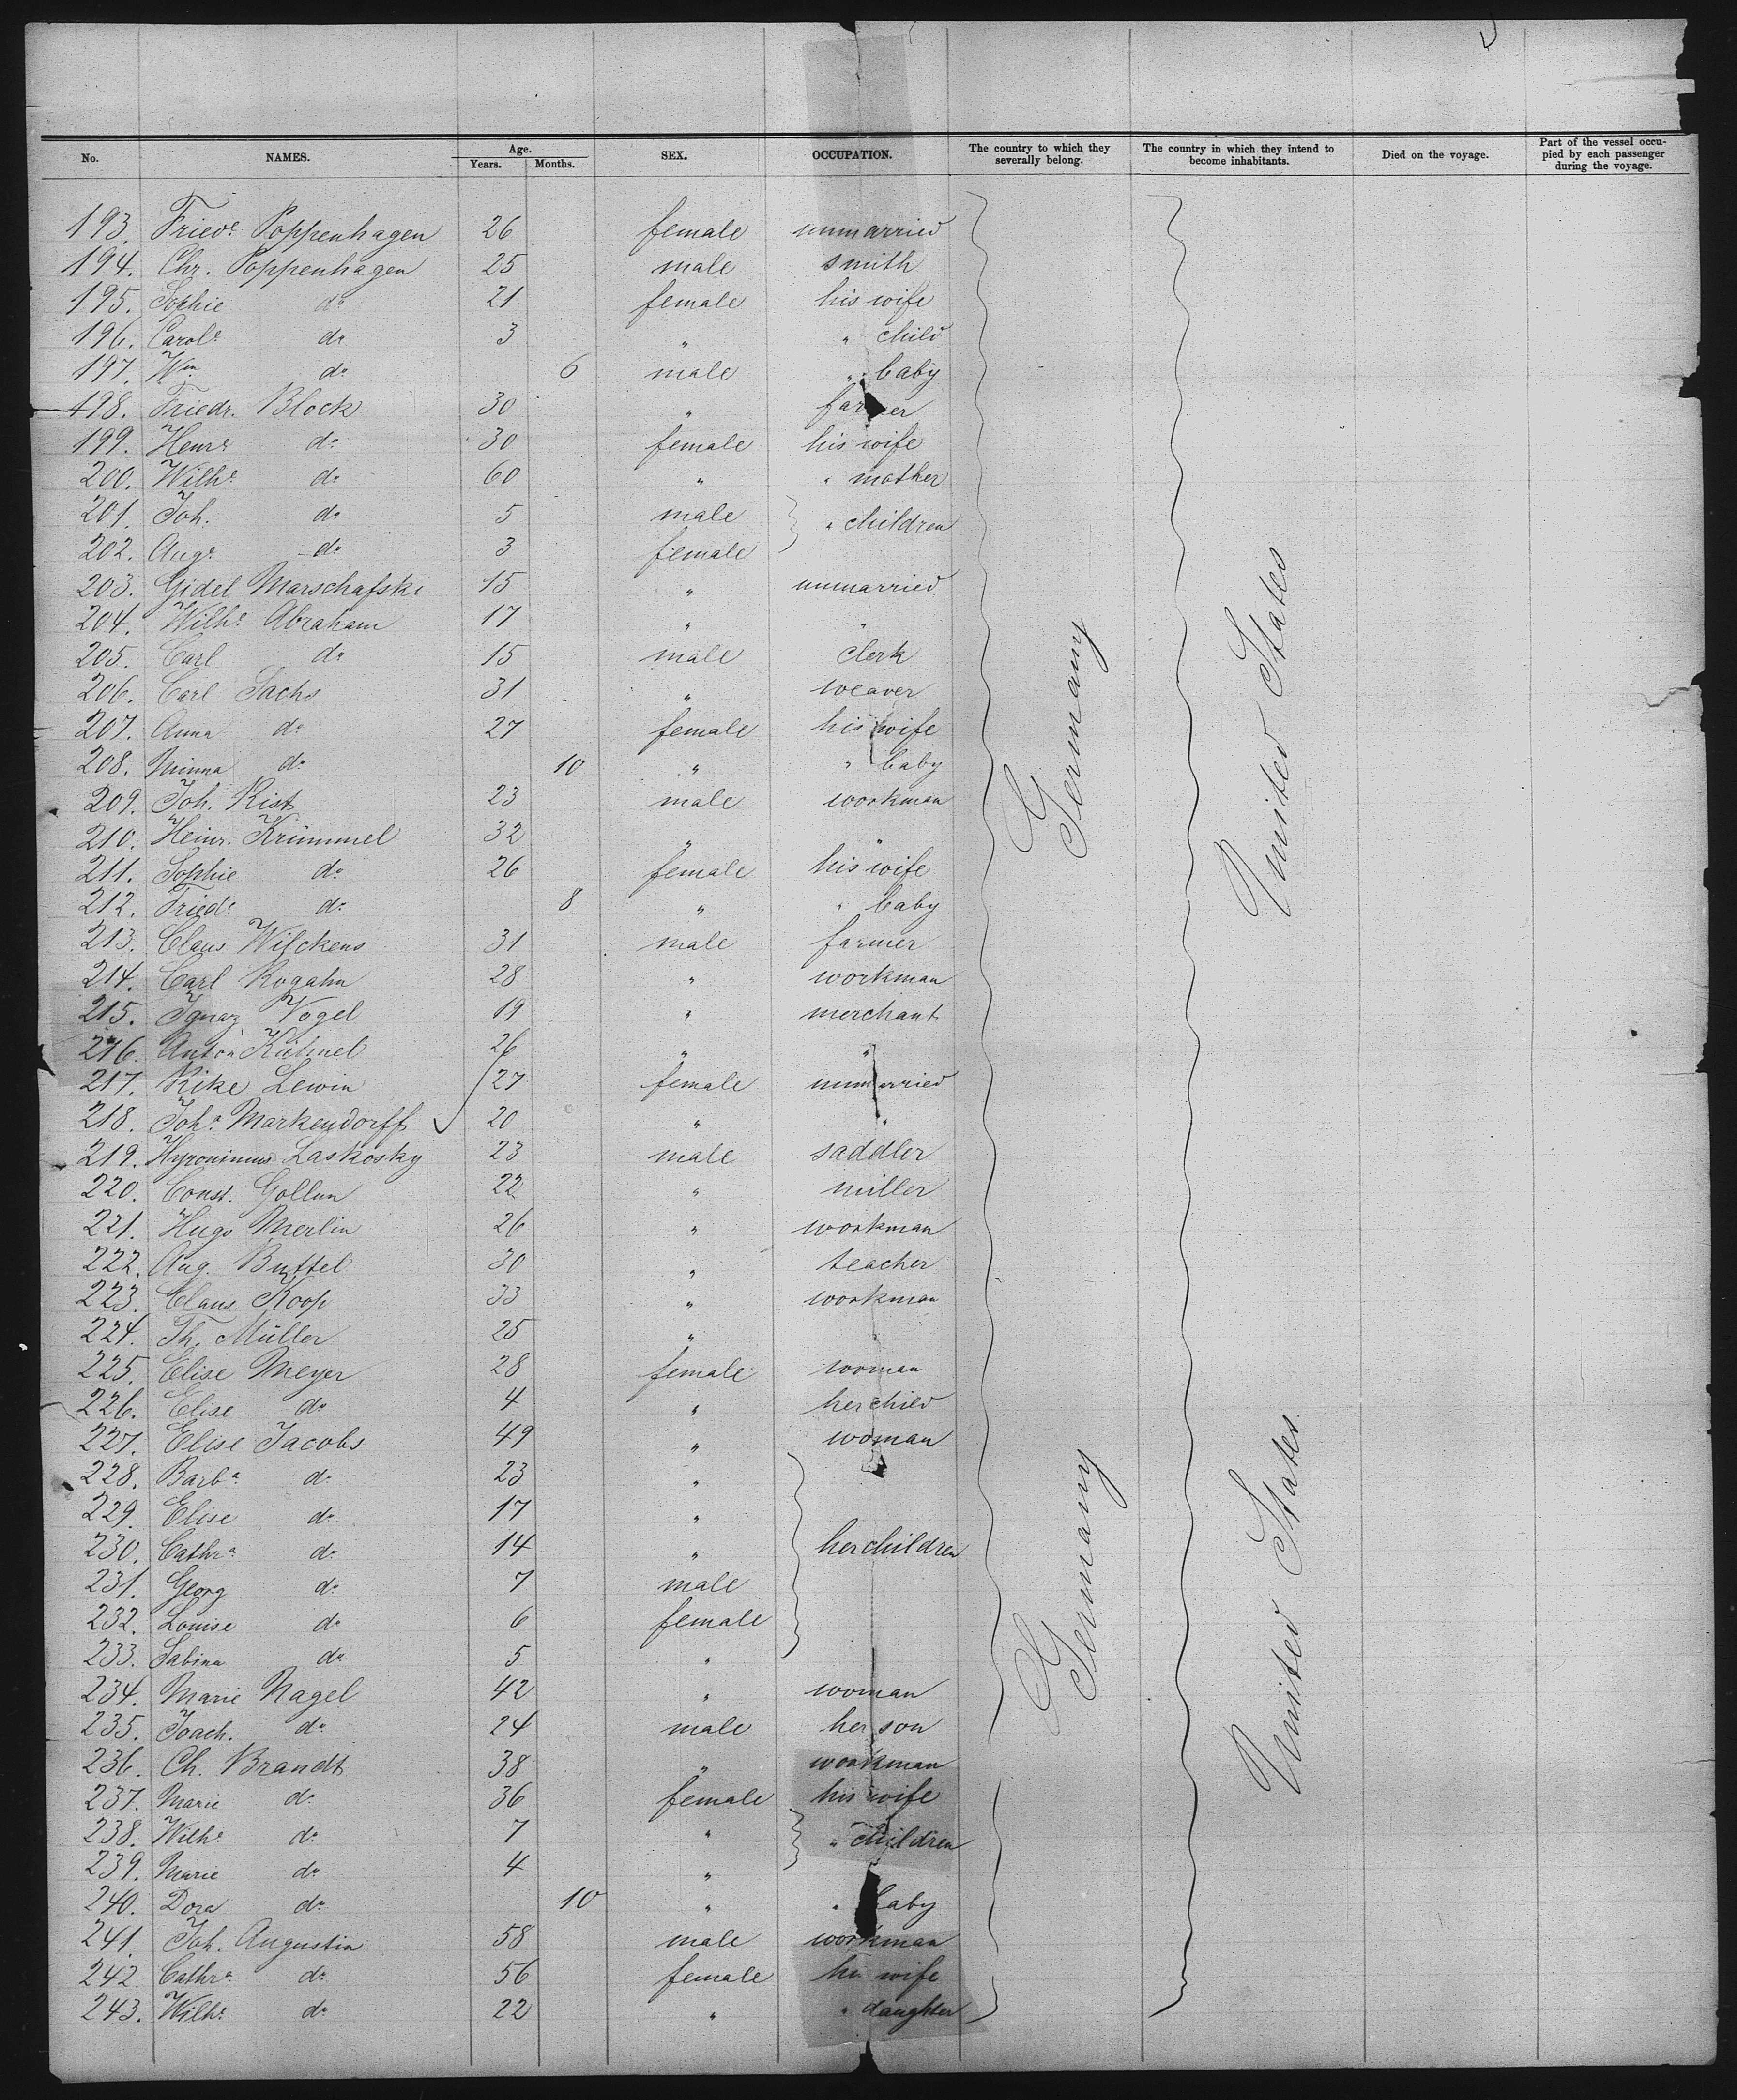 No. NAMES. Age. Years. Months. SEX. OCCUPATION. The country to which they severally belong. The country in which they intend to become inhabitants. Died on the voyage. Part of the vessel occupied by each passenger during the voyage.
193. Friede Poppenhagen 26 female unmarried
194. Chr. Poppenhagen 25 male smith
195. Sophie do 21 female his wife
196. Carole do 3 " " child
197. Wm do 6 male " baby
198. Friedr. Block 30 " farmer
199. Henre do 30 female his wife
200. Wilhe do 60 " " mother
201. Joh. do 5 male " children
202. Auge do 3 female
203. Gidel Marschafski 15 " unmarried
204. Wilhe Abraham 17 " "
205. Carl do 15 male clerk
206. Carl Sachs 31 " weaver
207. Anna do 27 female his wife
208. Minna do 10 " " baby
209. Joh. Rist 23 male workman
210. Heinr. Krümmel 32 " "
211. Sophie do 26 female his wife
212. Friede do 8 " " baby
213. Claus Wilckens 31 male farmer
214. Carl Rogahn 28 " workman
215. Ignaz Vogel 19 " merchant
216. Anton Kühnel 26 " "
217. Rike Lewin 27 female unmarried
218. Joha Markendorff 20 " "
219. Hyronimus Laskosky 23 male saddler
220. Const. Gollun 22 " miller
221. Hugo Merlin 26 " workman
222. Aug. Buttel 30 " teacher
223. Claus Koop 33 " workman
224. Th. Müller 25 " "
225. Elise Meyer 28 female woman
226. Elise do 4 " her child
227. Elise Jacobs 49 " woman
228. Barba do 23 "
229. Elise do 17 "
230. Cathra do 14 " her children
231. Georg do 7 male
232. Louise do 6 female
233. Sabina do 5 "
234. Marie Nagel 42 " woman
235. Joach. do 24 male her son
236. Ch. Brandt 38 " workman
237. Marie do 36 female his wife
238. Wilhe do 7 " " children
239. Marie do 4 "
240. Dora do 10 " " baby
241. Joh. Augustin 58 male workman
242. Cathra do 56 female his wife
243. Wilhe do 22 " " daughter
Germany
United States
Germany
United States